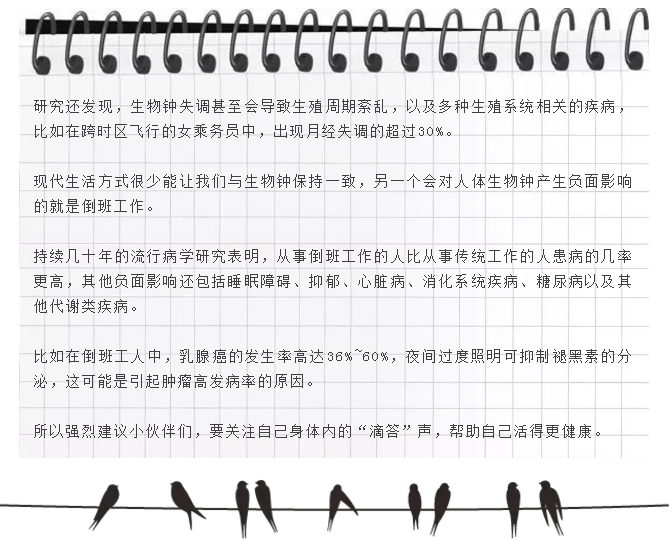 研究还发现，生物钟失调甚至会导致生殖周期紊乱，以及多种生殖系统相关的疾病，
比如在跨时区飞行的女乘务员中，出现月经失调的超过30%。
现代生活方式很少能让我们与生物钟保持一致，另一个会对人体生物钟产生负面影响
的就是倒班工作。
持续几十年的流行病学研究表明，从事倒班工作的人比从事传统工作的人患病的几率
更高，其他负面影响还包括睡眠障碍、抑郁、心脏病、消化系统疾病、糖尿病以及其
他代谢类疾病。
比如在倒班工人中，乳腺癌的发生率高达36%~60%，夜间过度照明可抑制褪黑素的分
泌，这可能是引起肿瘤高发病率的原因。
所以强烈建议小伙伴们，要关注自己身体内的“滴答”声，帮助自己活得更健康。